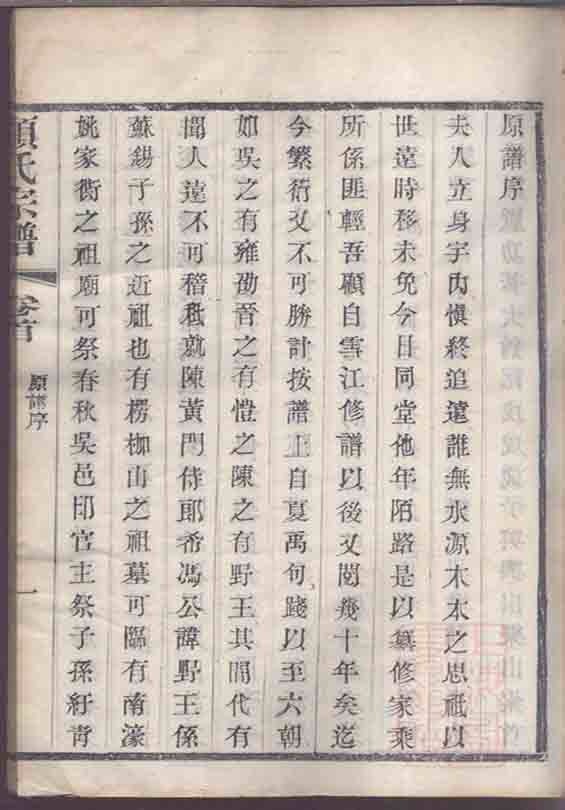 原譜序
夫人立身宇內愼終追遠誰無水源木本之思祗以
世遠時移未免今日同堂他年陌路是以纂修家乘
所係匪輕吾顧自雲江修譜以後又閱幾十年矣迄
今繁衍又不可勝計按譜上自夏禹句踐以至六朝
如吳之有雍劭晉之有愷之陳之有野王其間代有
聞人遠不可稽祗就陳黃門侍郎希馮公諱野王係
蘇錫子孫之近祖也有楞枷山之祖墓可臨有南濠
姚家衖之祖廟可祭春秋吳邑印官主祭子孫紆青
顧氏宗譜
卷首
原譜序
一